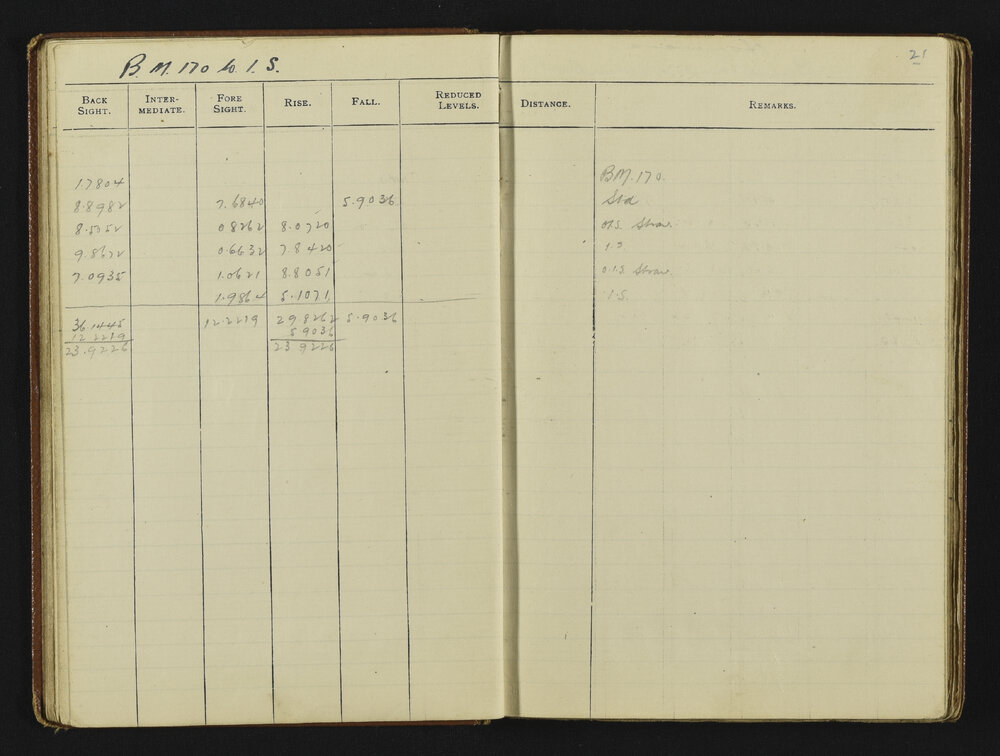 21
B.M. 170 to I.S.
BACK SIGHT. INTER-MEDIATE. FORE SIGHT. RISE. FALL. REDUCED LEVELS. DISTANCE. REMARKS.
1.7804 B.M. 170.
8.8982 7.6840 5.9036 Std
8.5052 0.8262 8.0720 O.I.S. Straw.
9.8672 0.6632 7.8420 I.S
7.0935 1.0621 8.8051 O.I.S. Straw
1.9864 5.1071 I.S.
36.1445 12.2219 29.8262 5.9036
12.2219 5.9036
23.9226 23.9226